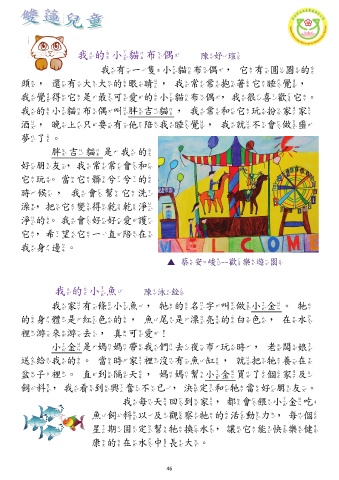 雙蓮兒童
我的小貓布偶 陳妤瑄
我有一隻小貓布偶，它有圓圓的
頭，還有大大的眼睛，我常常抱著它睡覺，
我覺得它是最可愛的小貓布偶，我很喜歡它。
我的小貓布偶叫胖吉貓，我常和它玩扮家家
酒，晚上只要有他陪我睡覺，我就不會做惡
夢了。
胖吉貓是我的
好朋友，我常常會和
它玩。當它髒兮兮的
時候，我會幫它洗
澡，把它變得乾乾淨
淨的。我會好好愛護
它，希望它一直陪在
我身邊。
WELCOME
▲ 蔡安崚--歡樂遊園
我的小金魚 陳泳銓
我家有條小金魚，牠的名字叫做小金。牠
的身體是紅色的，魚尾是漂亮的白色，在水
裡游來游去，真可愛！
小金是媽媽帶我們去夜市玩時，老闆娘
送給我的。當時家裡沒有魚缸，就把牠養在
盆子裡。直到隔天，媽媽幫小金買了個家及
飼料，我看到興奮不已，決定和牠當好朋友。
我每天回到家，都會餵小金吃
魚飼料以及觀察牠的活動力，每個
星期固定幫牠換水，讓它能快樂健
康的在水中長大。
46